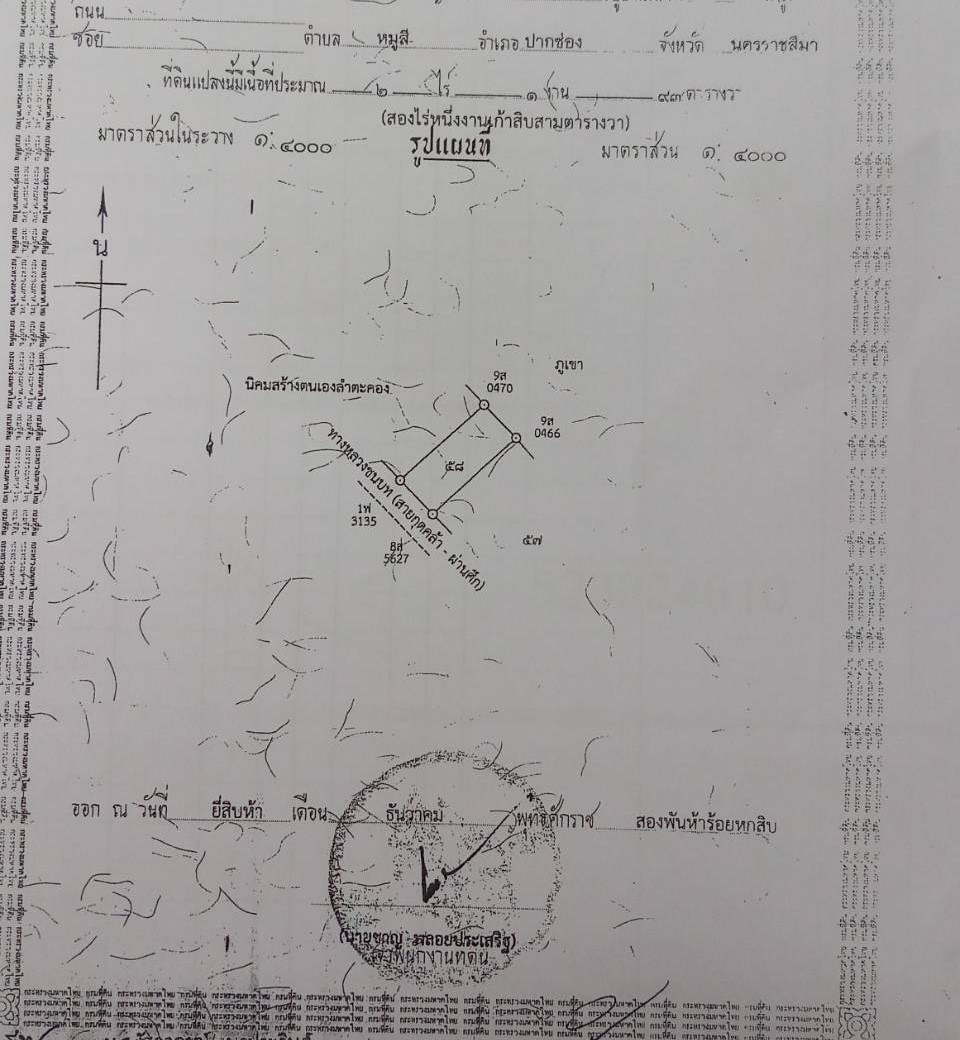 ถนน
ซอย ตำบล หมูสี อำเภอ ปากช่อง จังหวัด นครราชสีมา
ที่ดินแปลงนี้มีเนื้อที่ประมาณ ๒ ไร่ ๑ งาน ๙๓ ตารางวา
(สองไร่หนึ่งงานเก้าสิบสามตารางวา)
มาตราส่วนในระวาง ๑: ๔๐๐๐ รูปแผนที่ มาตราส่วน ๑: ๔๐๐๐
น
ภูเขา
นิคมสร้างตนเองลำตะคอง
9ส
0470
9ส
0466
๕๘
ทางหลวงชนบท (สายกุดคล้า - ผ่านศึก)
1ฟ
3135
๕๗
8ส
5627
ออก ณ วันที่ ยี่สิบห้า เดือน ธันวาคม พุทธศักราช สองพันห้าร้อยหกสิบ
(นายชาญ พลอยประเสริฐ)
เจ้าพนักงานที่ดิน
กระทรวงมหาดไทย กรมที่ดิน